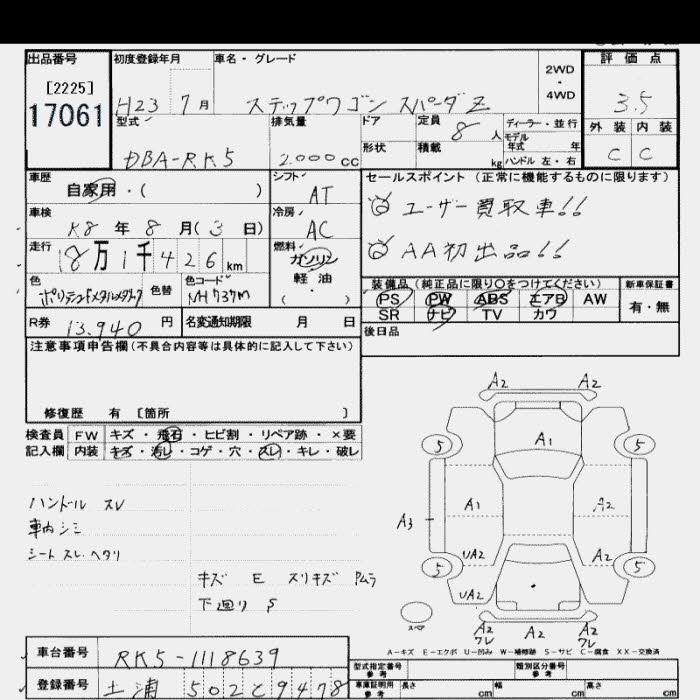 出品番号 初度登録年月 車名・グレード 2WD ・ 4WD 評価点
[2225]
17061 H23 7月 ステップワゴン スパーダ Z 3.5
型式 排気量 ドア 定員 8人 ディーラー・並行 外装 内装
モデル
DBA-RK5 2.000cc 形状 積載 kg 年式 年 C C
ハンドル 左・右
車歴 自家用・( ) シフト AT セールスポイント (正常に機能するものに限ります)
ユーザー買取車!!
車検 R8年 8月(3日) 冷房 AC
AA初出品!!
走行 18万1千426km 燃料 ガソリン
軽油
( )
色 色替 色コード NH737M 装備品 (純正品に限り○をつけてください) 新車保証書
ポリッシュドメタルメタリック PS PW ABS エアB AW 有・無
SR ナビ TV カワ
R券 13.940円 名変通知期限 月 日 後日品
注意事項申告欄 (不具合内容等は具体的に記入して下さい)
修復歴 有 [箇所 ]
検査員 FW キズ・飛石・ヒビ割・リペア跡・×要
記入欄 内装 キズ・汚レ・コゲ・穴・スレ・キレ・破レ
ハンドル スレ
車内シミ
シート スレ. ヘタリ
キズ E スリキズ
下廻り S
A2 A2
A1
5 5
A1 A2
A3
UA2 A2
5 5
UA2
スペア
A2 A2 A2
フレ フレ
A-キズ E-エクボ U-凹み W-補修跡 S-サビ C-腐食 XX-交換済
車台番号 RK5-1118639
型式指定番号 参考 類別区分番号 参考
登録番号 土浦 502 と 9478
車庫証明用 参考 長さ cm 幅 cm 高さ cm